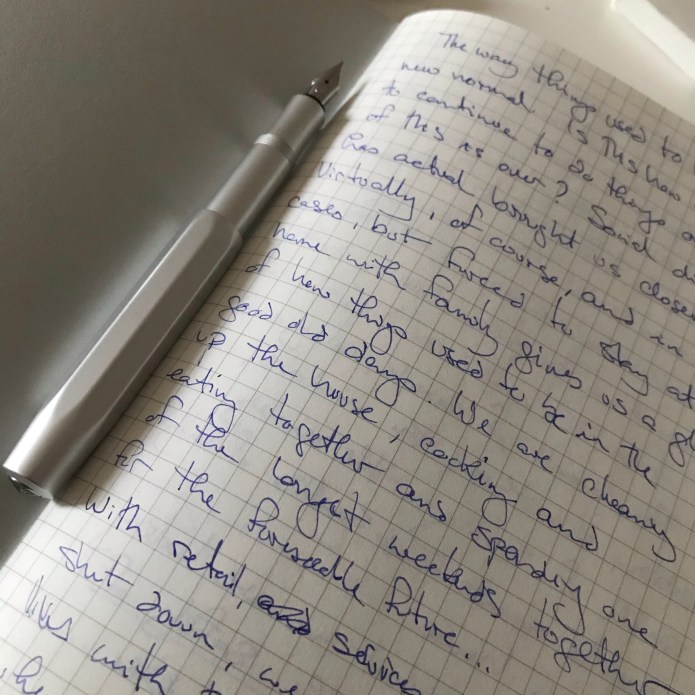 The way things used to
new normal. Is this how
to continue to do things
of this is over? Social
has actual brought us closer
Virtually, of course, and in
cases, but forced to stay at
home with family gives us a
of how things used to be in the
good old days. We are cleaning
up the house, cooking and
eating together and spending one
of the longest weekends together
for the foreseeable future...
With retail, services
shut down, we
lives with